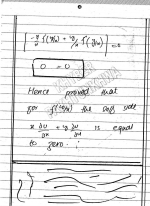 -y/x f(y/x) + y/x f(y/x) = 0
0 = 0
Hence proved that
for f(y/x) the
side
x ∂u/∂x + y ∂u/∂y is equal
to zero.